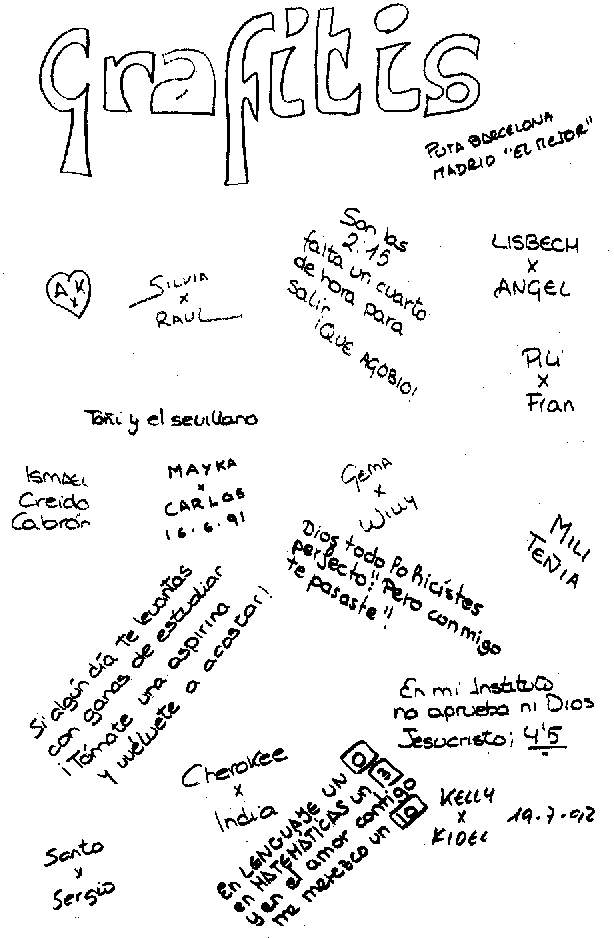 grafitis
PUTA BARCELONA
MADRID "EL MEJOR"
Son las
2:15
falta un cuarto
de hora para
salir
¡QUE AGOBIO!
LISBECH
x
ANGEL
A K
x
SILVIA
x
RAUL
Pili
x
Fran
Toñi y el sevillano
ISMAEL
Creido
Cabrón
MAYKA
x
CARLOS
16.6.91
Gema
x
Willy
MILI
TENIA
Dios todo lo hicistes
perfecto; "Pero conmigo
te pasaste"!
Si algún día te levantas
con ganas de estudiar
¡Tómate una aspirina
y vuélvete a acostar!
En mi Instituto
no aprueba ni Dios
Jesucristo; 4'5
Cherokee
x
India
En LENGUAJE UN 0
en MATEMATICAS un 3
y en el amor contigo
me merezco un 10
KELLY
x
KIDEL
19.7.92
Santo
x
Sergio